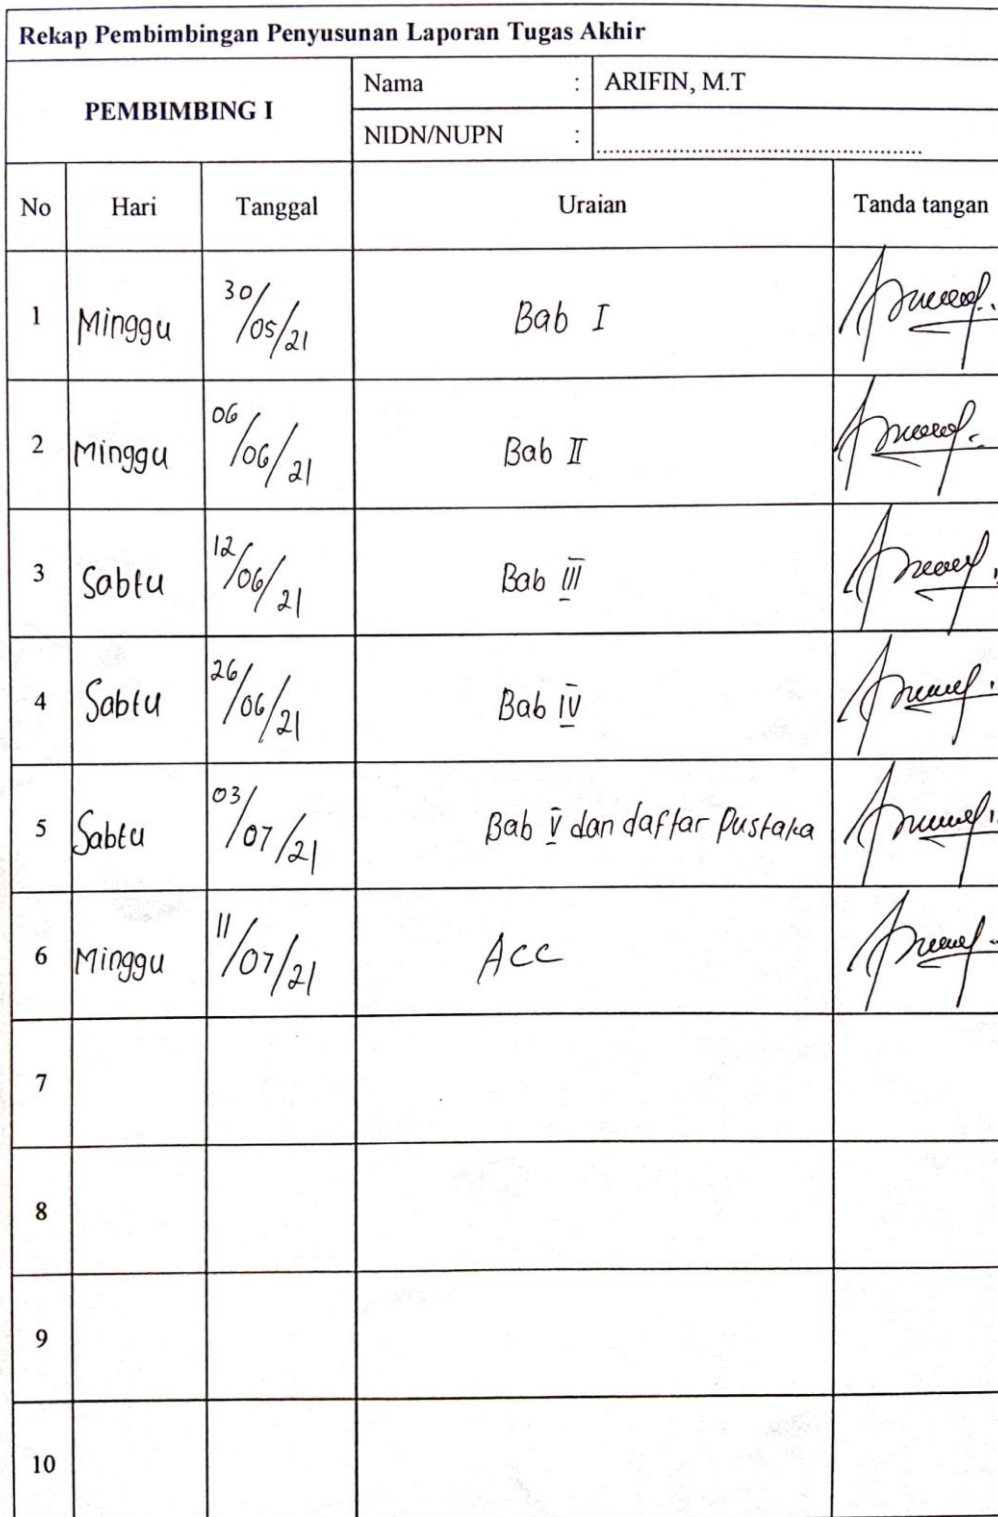 Rekap Pembimbingan Penyusunan Laporan Tugas Akhir
PEMBIMBING I
Nama : ARIFIN, M.T
NIDN/NUPN : ...............................................
No Hari Tanggal Uraian Tanda tangan
1 Minggu 30/05/21 Bab I
2 Minggu 06/06/21 Bab II
3 Sabtu 12/06/21 Bab III
4 Sabtu 26/06/21 Bab IV
5 Sabtu 03/07/21 Bab V dan daftar Pustaka
6 Minggu 11/07/21 Acc
7
8
9
10